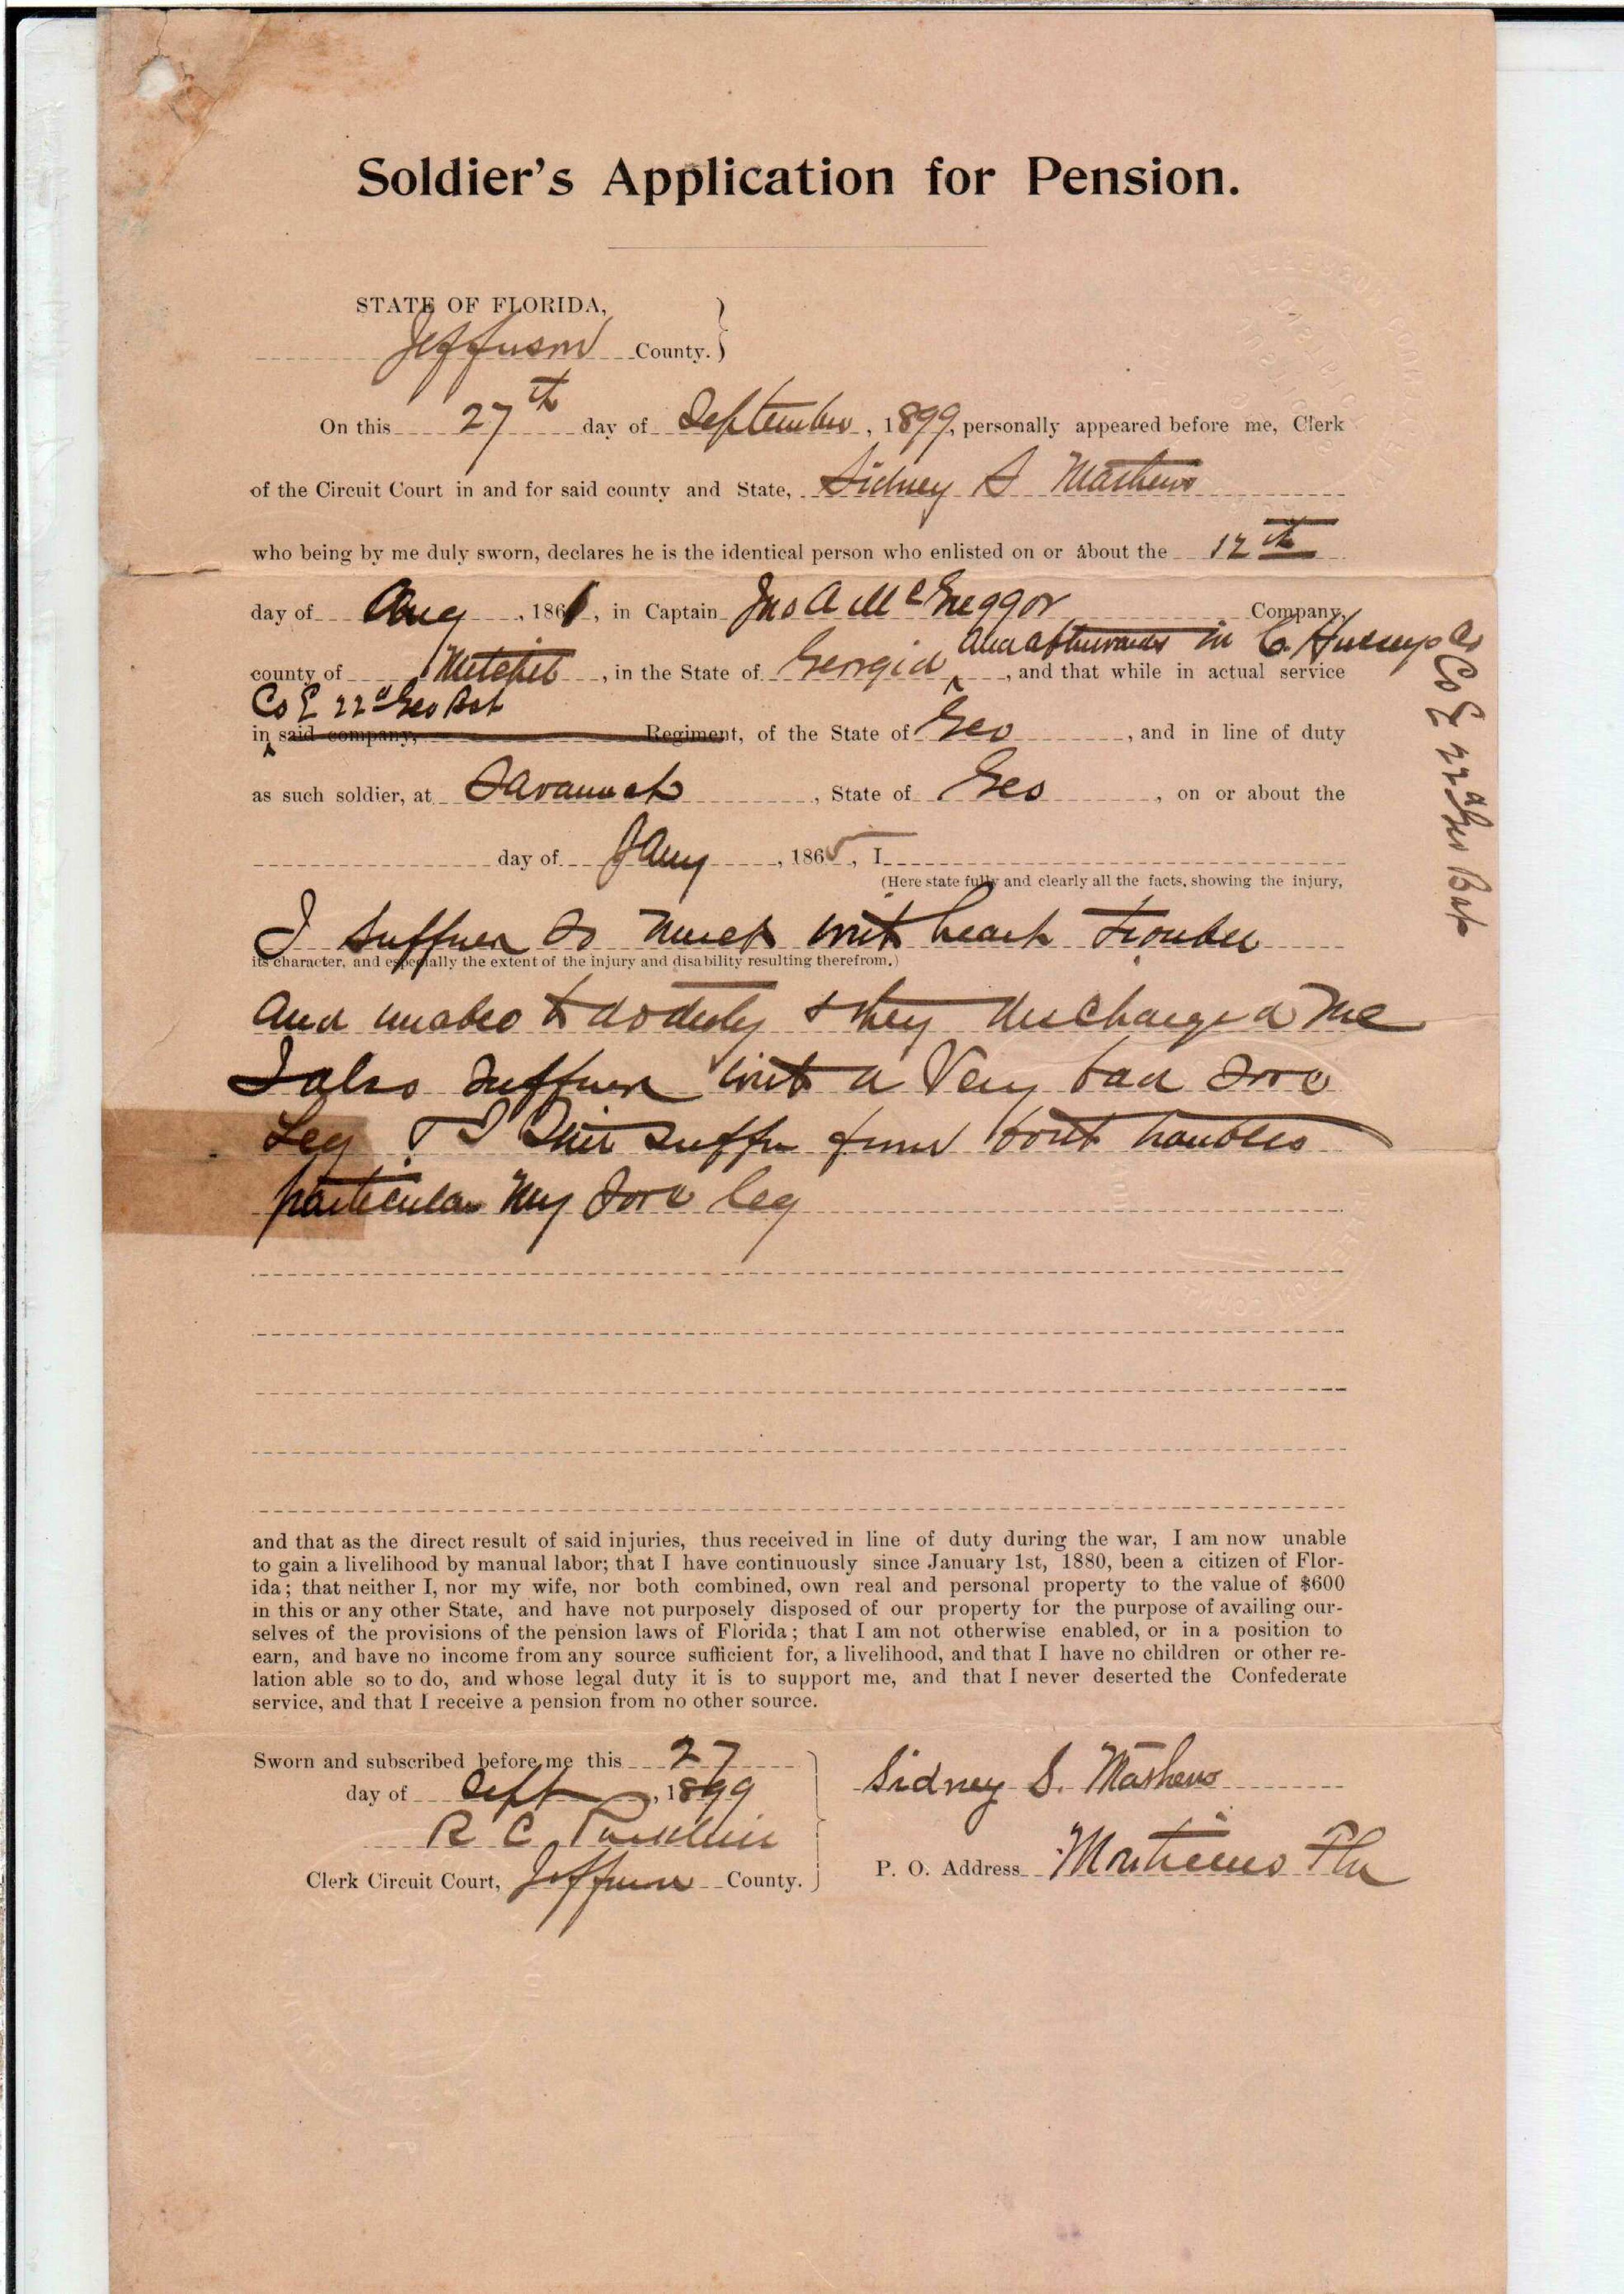 Soldier's Application for Pension.
STATE OF FLORIDA,
Jefferson County.
On this 27th day of September, 1899, personally appeared before me, Clerk
of the Circuit Court in and for said county and State, Sidney S Mathews
who being by me duly sworn, declares he is the identical person who enlisted on or about the 12th
day of Aug, 1861, in Captain Jno A McGreggor Company,
and afterwards in C.
county of Mitchel, in the State of Georgia, and that while in actual service
Co E 22d Geo Bat
in said company, Regiment, of the State of Geo, and in line of duty
as such soldier, at Savannah, State of Geo, on or about the
day of Jany, 1865, I
(Here state fully and clearly all the facts, showing the injury,
I suffered so much with heart trouble
its character, and especially the extent of the injury and disability resulting therefrom.)
and unable to do duty & they discharged me
I also suffered with a Very bad sore
Leg & I still suffer from both troubles
particular my sore leg
and that as the direct result of said injuries, thus received in line of duty during the war, I am now unable
to gain a livelihood by manual labor; that I have continuously since January 1st, 1880, been a citizen of Flor-
ida; that neither I, nor my wife, nor both combined, own real and personal property to the value of $600
in this or any other State, and have not purposely disposed of our property for the purpose of availing our-
selves of the provisions of the pension laws of Florida; that I am not otherwise enabled, or in a position to
earn, and have no income from any source sufficient for, a livelihood, and that I have no children or other re-
lation able so to do, and whose legal duty it is to support me, and that I never deserted the Confederate
service, and that I receive a pension from no other source.
Sworn and subscribed before me this 27
day of Sept, 1899
R C
Clerk Circuit Court, Jefferson County.
Sidney S. Mathews
P. O. Address Monticello Fla
Co E 22d Geo Bat